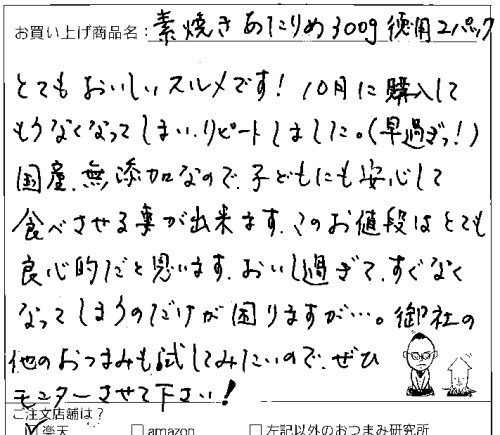 お買い上げ商品名：素焼きあたりめ300g徳用2パック
とてもおいしいスルメです！10月に購入して
もうなくなってしまい、リピートしました。（早過ぎっ！）
国産、無添加なので、子どもにも安心して
食べさせる事が出来ます。このお値段はとても
良心的だと思います。おいし過ぎて、すぐなく
なってしまうのだけが困りますが…。御社の
他のおつまみも試してみたいので、ぜひ
モニターさせて下さい！
ご注文店舗は？
楽天 □amazon □左記以外のおつまみ研究所